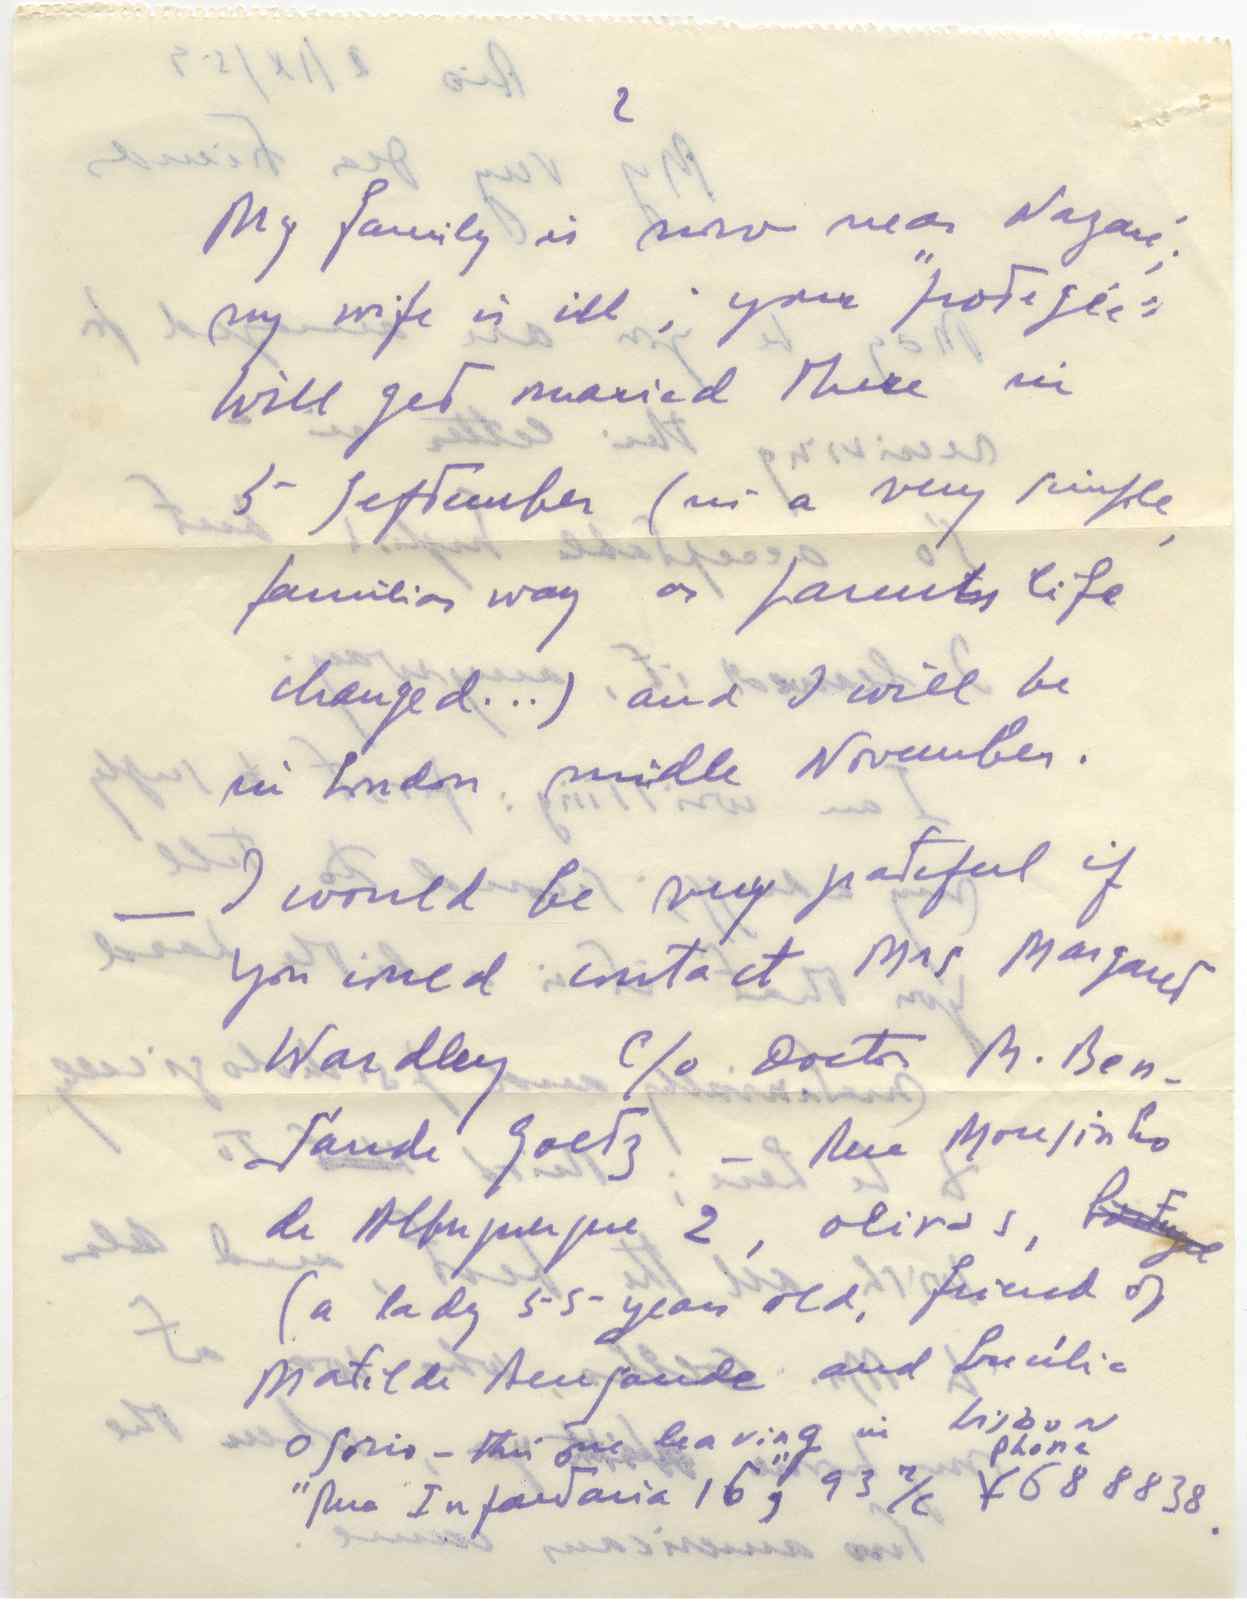 2
My family is now near Nazaré;
my wife is ill; your "protegée"
will get maried there in
5 September (in a very simple,
familiar way as parents life
changed...) and I will be
in London midlle November.
— I would be very grateful if
you could contact Mrs Margaret
Wardley C/o Doctor R. Ben-
saude Goetz – Rua Mousinho
de Albuquerque 2, Olivais,
(a lady 55 years old, friend of
Matilde Bensaude and Lucilia
Osorio – this one leaving in Lisbon
phone
"Rua Infantaria 16", 93 r/c 688838.